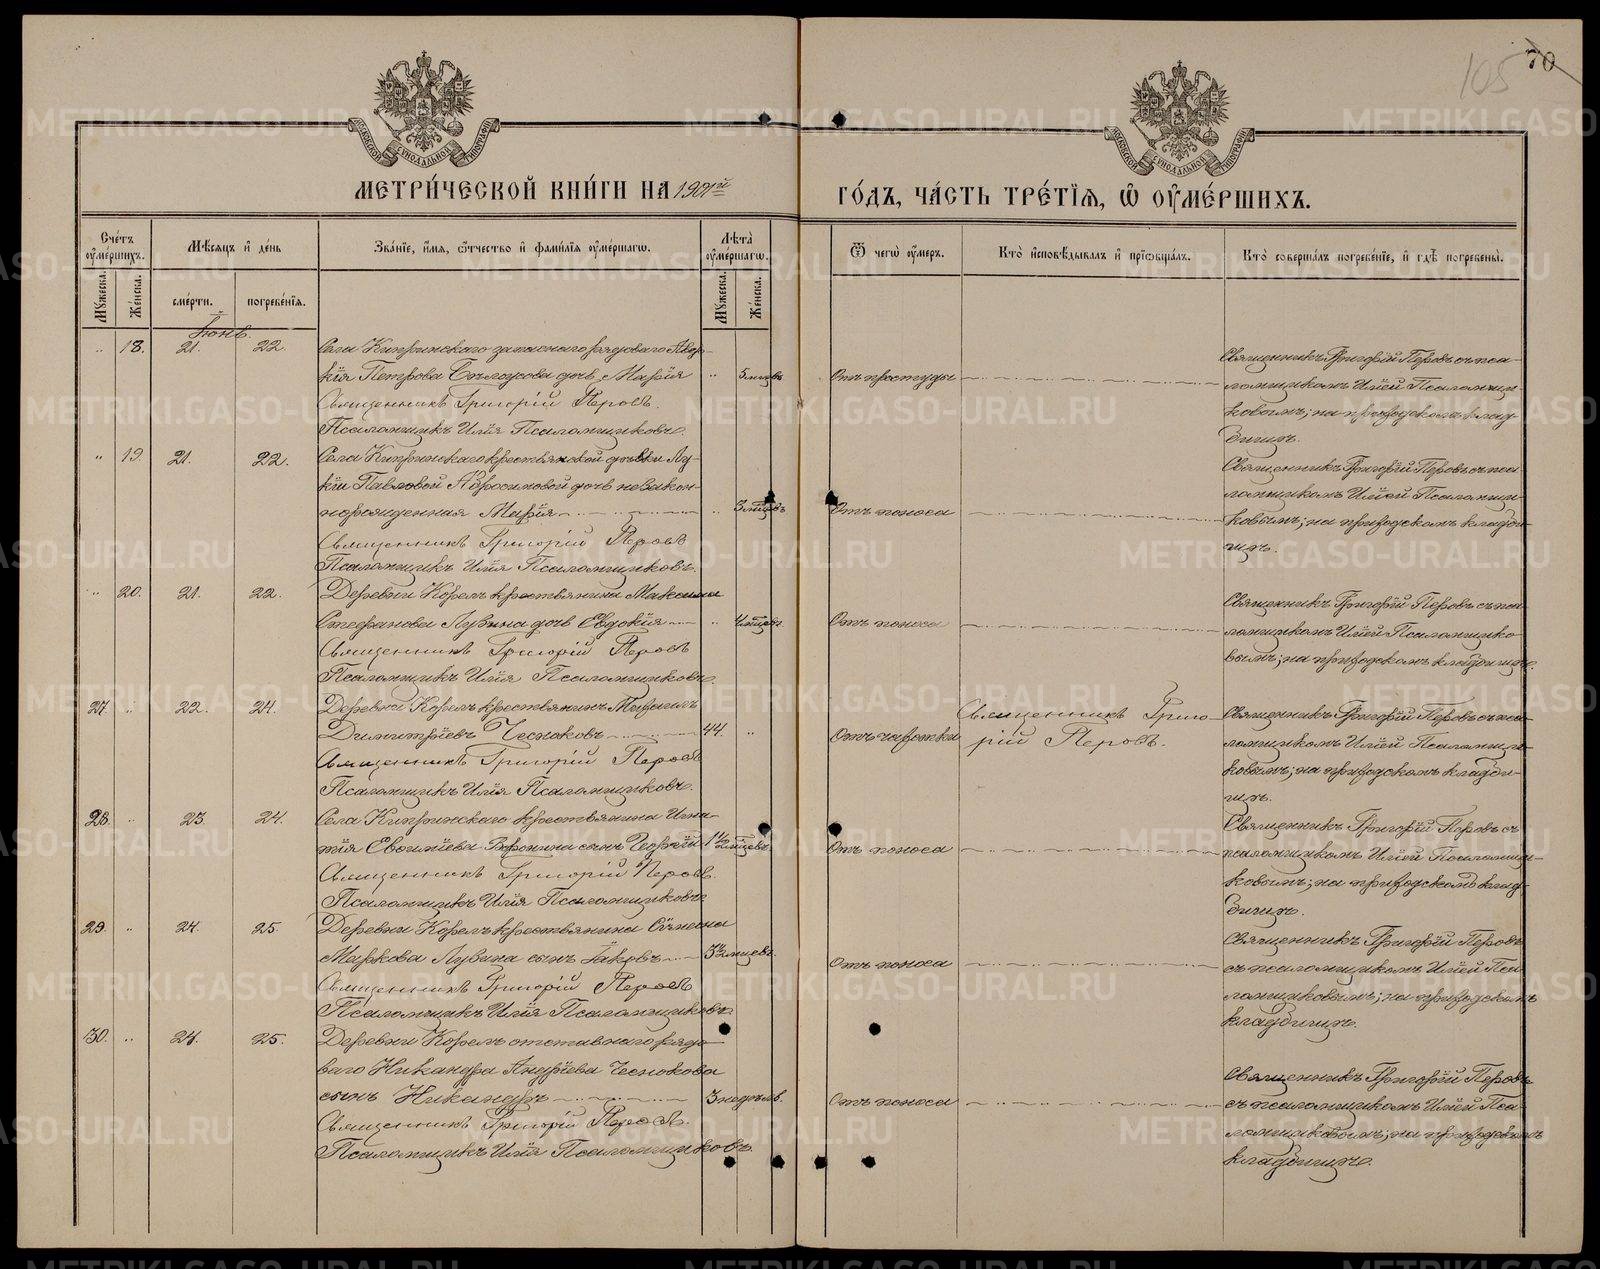 105
70
МОСКОВСКОЙ СѴНОДАЛЬНОЙ ТИПОГРАФІИ
МОСКОВСКОЙ СѴНОДАЛЬНОЙ ТИПОГРАФІИ
МЕТРИ́ЧЕСКОЙ КНИ́ГИ НА 1901й
ГО́ДЪ, ЧА́СТЬ ТРЕ́ТІЯ, Ѡ҆ ОУ҆МЕ́РШИХЪ.
Сче́тъ оу҆ме́ршихъ.
Мѣ́сяцъ и҆ де́нь
Зва́ніе, и҆́мя, ѻ҆́тчество и҆ фами́лія оу҆ме́ршагѡ.
Лѣ́та оу҆ме́ршагѡ.
Ѿ чегѡ̀ оу҆́меръ.
Кто̀ и҆сповѣ́дывалъ и҆ прїѡбща́лъ.
Кто̀ соверша́лъ погребе́ніе, и҆ гдѣ̀ погребены̀.
Мꙋ́жеска.
Же́нска.
сме́рти.
погребе́нія.
Мꙋ́жеска.
Же́нска.
Іюнь.
" 18. 21. 22.
Села Кипринскаго запаснаго рядоваго Авер-
кія Петрова Бѣлоусова дочь Марія " 5 мцевъ
Священникъ Григорій Перовъ.
Псаломщикъ Илія Псаломщиковъ.
Отъ простуды
Священникъ Григорій Перовъ съ пса-
ломщикомъ Иліей Псаломщи-
ковымъ; на приходскомъ клад-
бищѣ.
" 19. 21. 22.
Села Кипринскаго крестьянской дѣвки Лу-
кіи Павловой Абросимовой дочь незакон-
норожденная Марія " 3 мцевъ
Священникъ Григорій Перовъ
Псаломщикъ Илія Псаломщиковъ.
Отъ поноса
Священникъ Григорій Перовъ съ пса-
ломщикомъ Иліей Псаломщи-
ковымъ; на приходскомъ кладби-
щѣ.
" 20. 21. 22.
Деревни Корелъ крестьянина Максима
Стефанова Лузина дочь Евдокія " 4 мцевъ
Священникъ Григорій Перовъ
Псаломщикъ Илія Псаломщиковъ.
Отъ поноса
Священникъ Григорій Перовъ съ пса-
ломщикомъ Иліей Псаломщико-
вымъ; на приходскомъ кладбищѣ.
27. " 22. 24.
Деревни Корелъ крестьянинъ
Димитріевъ Чесноковъ 44. "
Священникъ Григорій Перовъ
Псаломщикъ Илія Псаломщиковъ.
Отъ чахотки
Священникъ Григо-
рій Перовъ.
Священникъ Григорій Перовъ съ пса-
ломщикомъ Иліей Псаломщи-
ковымъ; на приходскомъ кладби-
щѣ.
28. " 23. 24.
Села Кипринскаго крестьянина Игна-
тія Евсиміева сынъ Георгій 1½ мцевъ
Священникъ Григорій Перовъ.
Псаломщикъ Илія Псаломщиковъ.
Отъ поноса
Священникъ Григорій Перовъ съ
псаломщикомъ Иліей Псаломщи-
ковымъ; на приходскомъ клад-
бищѣ.
29. " 24. 25.
Деревни Корелъ крестьянина Сѵмеона
Маркова Лузина сынъ Іаковъ 3½ мцевъ
Священникъ Григорій Перовъ
Псаломщикъ Илія Псаломщиковъ
Отъ поноса
Священникъ Григорій Перовъ
съ псаломщикомъ Иліей Пса-
ломщиковымъ; на приходскомъ
кладбищѣ.
30. " 24. 25.
Деревни Корелъ отставнаго рядо-
ваго Никандра Андріева Чеснокова
сынъ Никандръ 3 недѣль.
Священникъ Григорій Перовъ.
Псаломщикъ Илія Псаломщиковъ.
Отъ поноса
Священникъ Григорій Перовъ
съ псаломщикомъ Иліей Пса-
ломщиковымъ; на приходскомъ
кладбищѣ.
METRIKI.GASO-URAL.RU